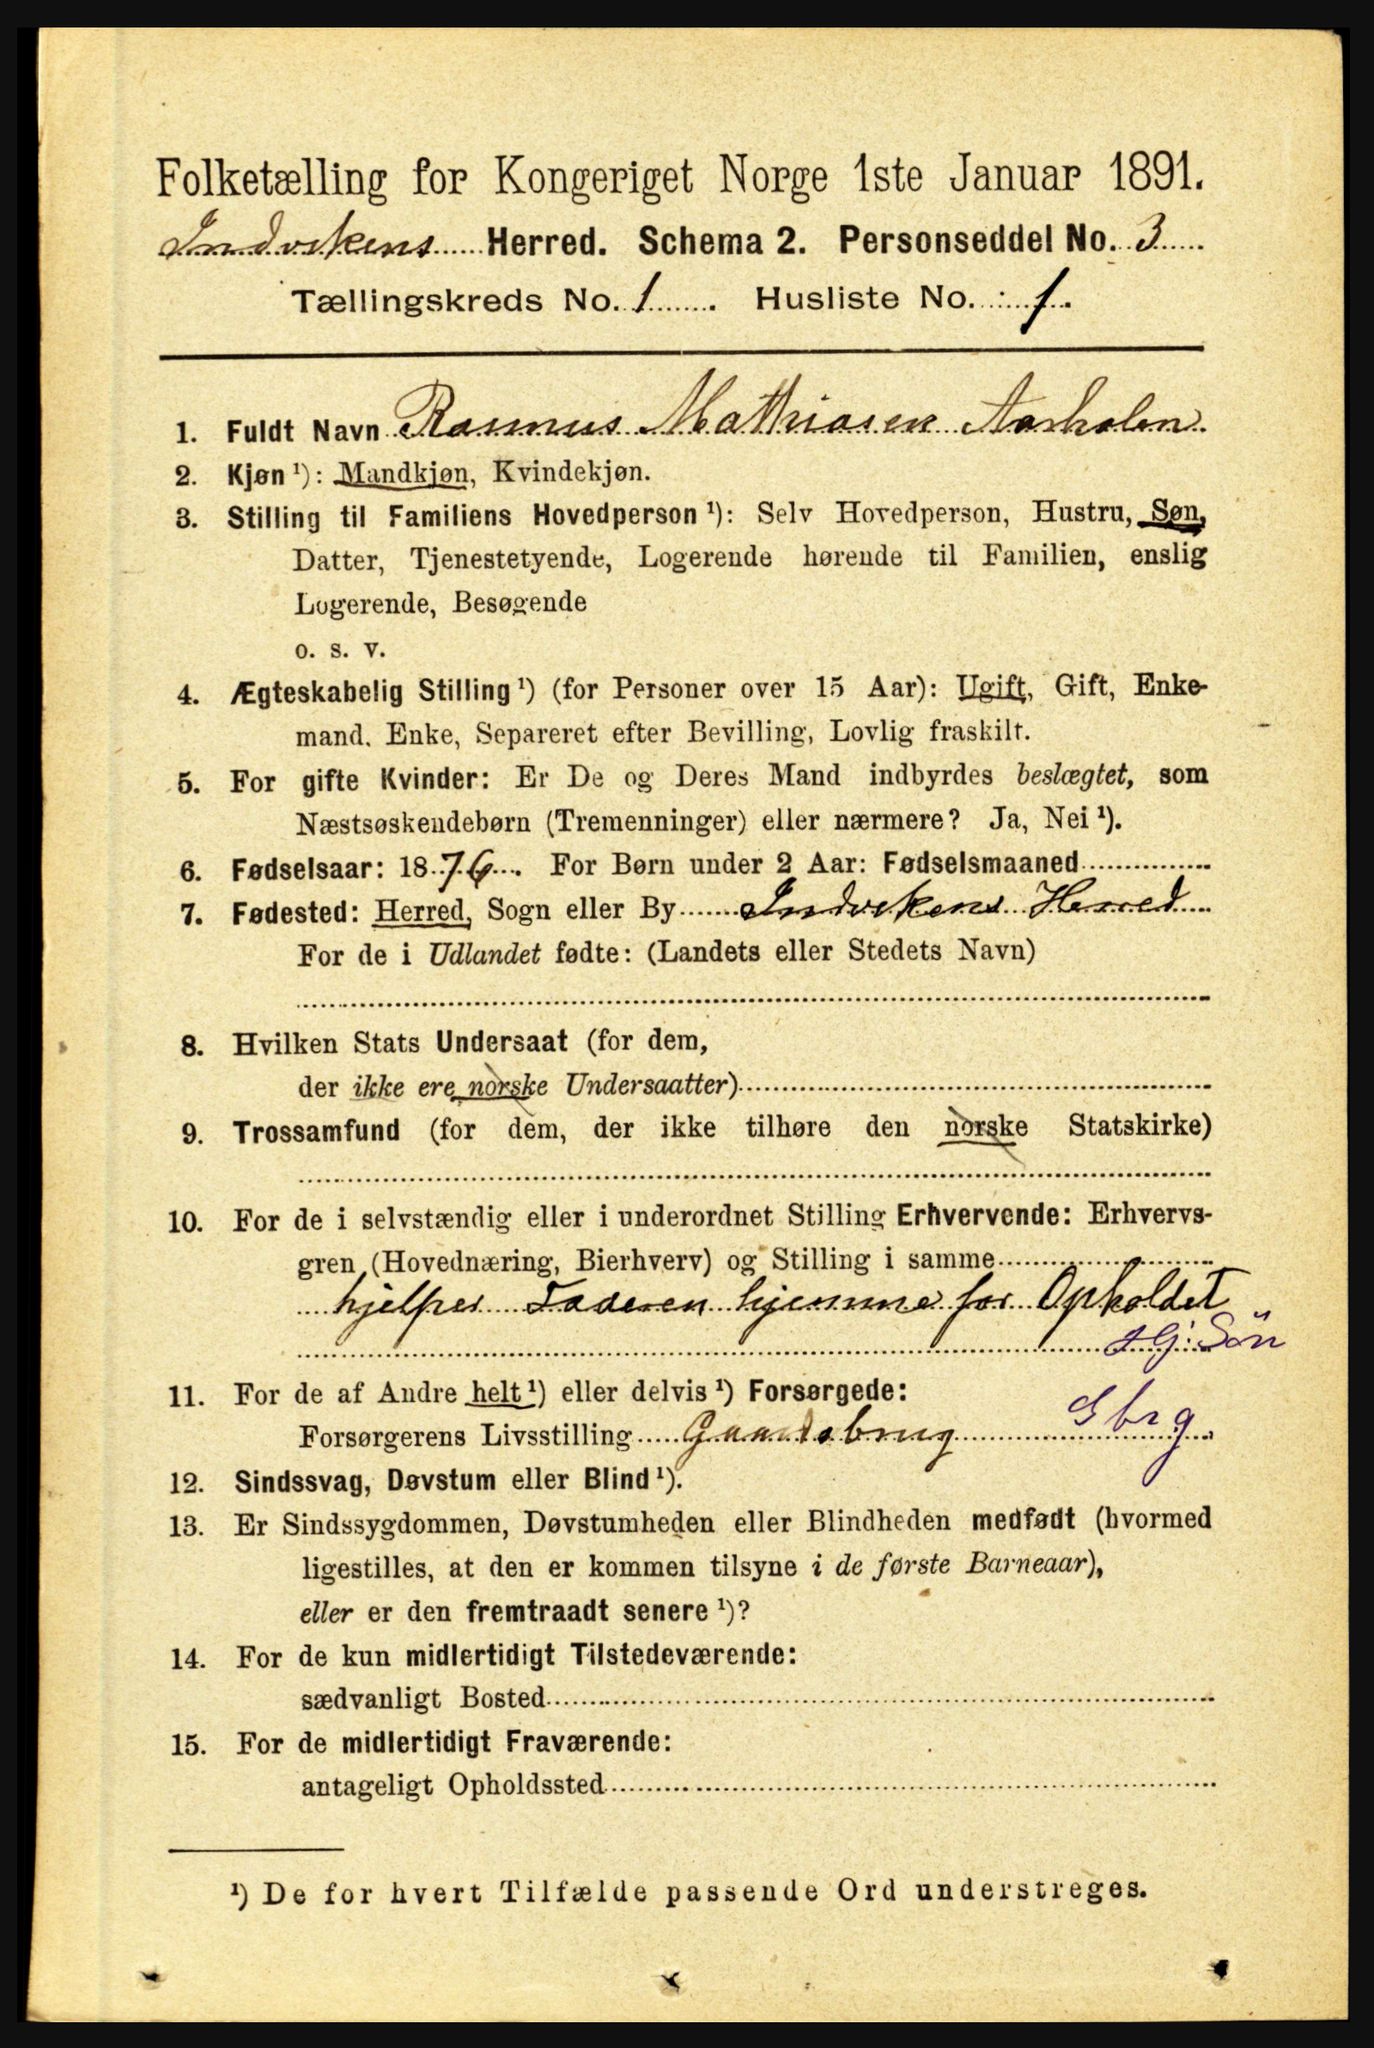 Folketælling for Kongeriget Norge 1ste Januar 1891.
Indvikens Herred. Schema 2. Personseddel No. 3
Tællingskreds No. 1. Husliste No. 1.
1. Fuldt Navn Rasmus Mathiasen Aarholen.
2. Kjøn ¹): Mandkjøn, Kvindekjøn.
3. Stilling til Familiens Hovedperson ¹): Selv Hovedperson, Hustru, Søn,
Datter, Tjenestetyende, Logerende hørende til Familien, enslig
Logerende, Besøgende
o. s. v.
4. Ægteskabelig Stilling ¹) (for Personer over 15 Aar): Ugift, Gift, Enke-
mand. Enke, Separeret efter Bevilling, Lovlig fraskilt.
5. For gifte Kvinder: Er De og Deres Mand indbyrdes beslægtet, som
Næstsøskendebørn (Tremenninger) eller nærmere? Ja, Nei ¹).
6. Fødselsaar: 1876. For Børn under 2 Aar: Fødselsmaaned
7. Fødested: Herred, Sogn eller By Indvikens Herred
For de i Udlandet fødte: (Landets eller Stedets Navn)
8. Hvilken Stats Undersaat (for dem,
der ikke ere norske Undersaatter)
9. Trossamfund (for dem, der ikke tilhøre den norske Statskirke)
10. For de i selvstændig eller i underordnet Stilling Erhvervende: Erhvervs-
gren (Hovednæring, Bierhverv) og Stilling i samme
hjelper Faderen hjemme for Opholdet
Søn
11. For de af Andre helt ¹) eller delvis ¹) Forsørgede:
Gbrg
Forsørgerens Livsstilling Gaardsbrug
12. Sindssvag, Døvstum eller Blind ¹).
13. Er Sindssygdommen, Døvstumheden eller Blindheden medfødt (hvormed
ligestilles, at den er kommen tilsyne i de første Barneaar),
eller er den fremtraadt senere ¹)?
14. For de kun midlertidigt Tilstedeværende:
sædvanligt Bosted
15. For de midlertidigt Fraværende:
antageligt Opholdssted
¹) De for hvert Tilfælde passende Ord understreges.